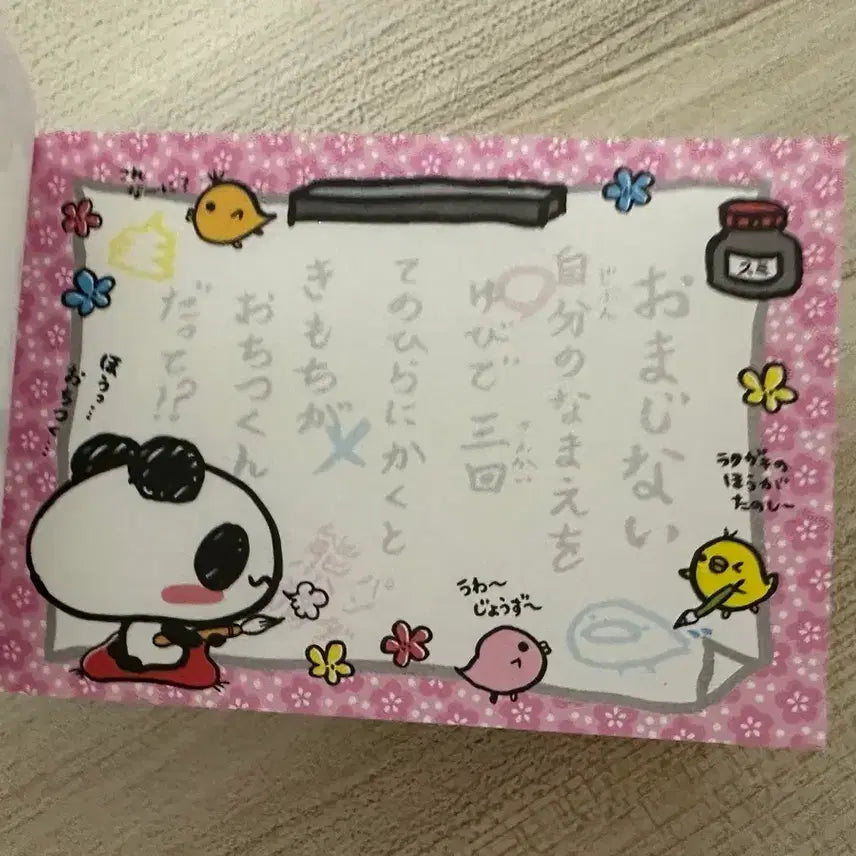 おまじない
自分のなまえを
じぶん
ゆびで三回
さんかい
てのひらにかくと
きもちが
おちつくん
だって!?
スミ
ラクガキの
ほうが
たのしー
うわ〜
じょうず〜
これ
なーに?
ほうっ…
おちつく…